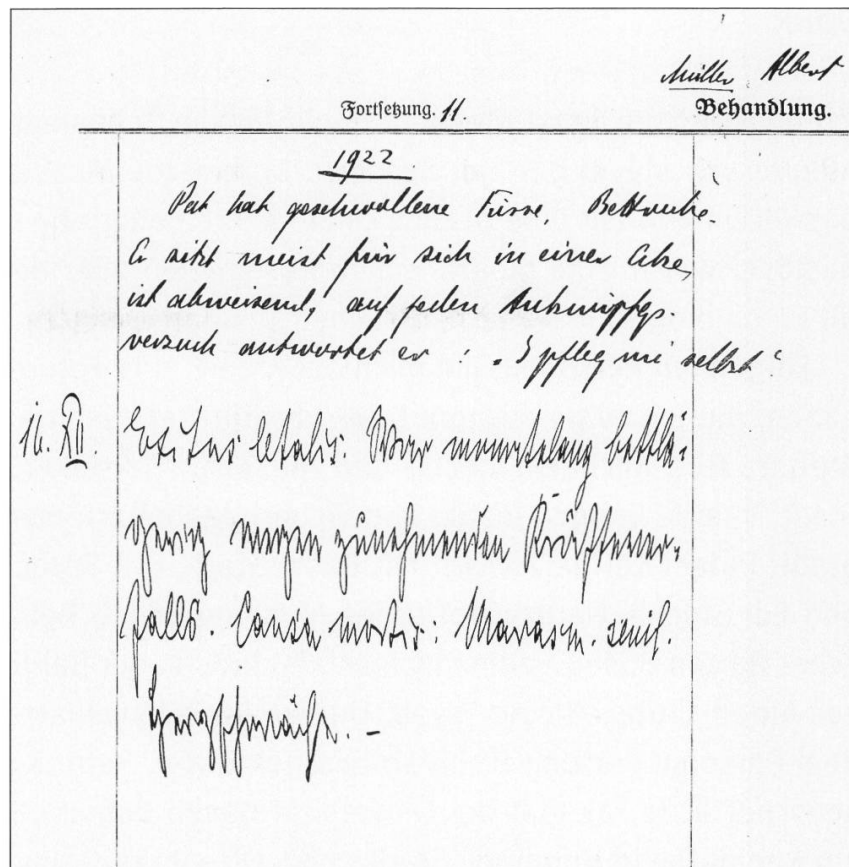 Müller Albert
Fortsetzung. 11. Behandlung.
1922.
Pat hat geschwollene Füsse, Bettruhe.
Er sitzt meist für sich in einer Ecke,
ist abweisend, auf jeden Anknüpfgs.
versuch antwortet er : „I pfleg mi selbst“
16. XII. Exitus letalis. War monatelang bettlä-
gerig wegen zunehmenden Kräftever-
falls. Causa mortis: Marasm. senil.
Herzschwäche. –